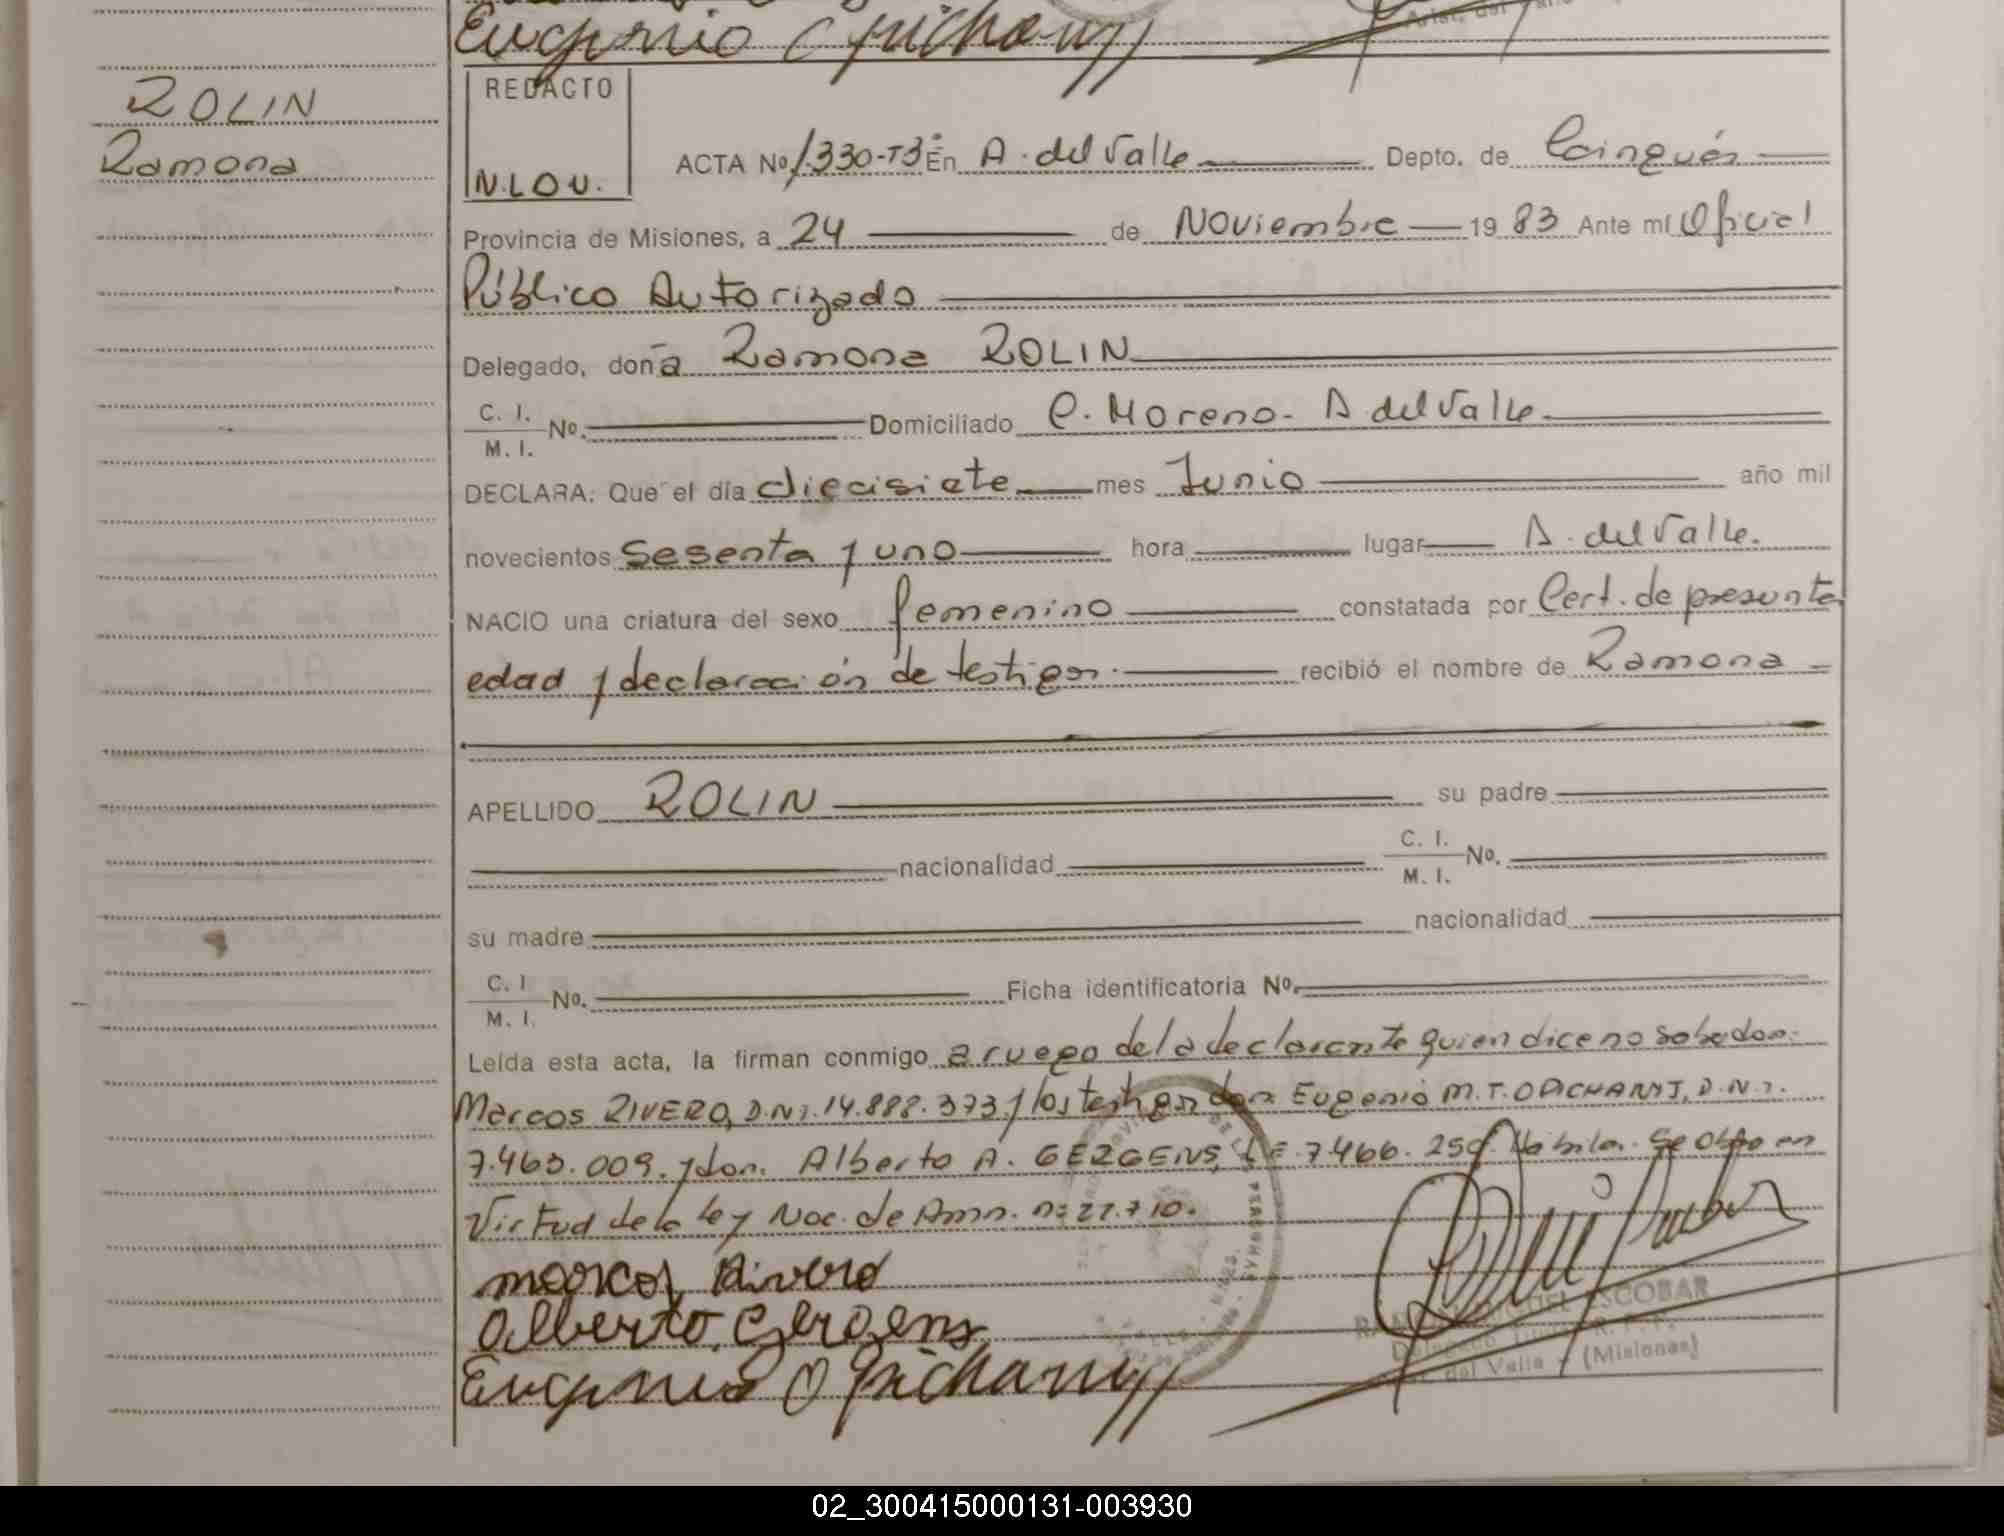 Eugenio Opichanyj
ROLIN
Ramona
REDACTO
N.L.O.V.
ACTA Nº 1.330-T3º En A. del Valle Depto. de Cainguás
Provincia de Misiones, a 24 de Noviembre 1983 Ante mí Oficial
Público Autorizado
Delegado, doña Ramona ROLIN
C. I.
M. I. Nº. Domiciliado C. Moreno - A del Valle
DECLARA: Que el día diecisiete mes Junio año mil
novecientos Sesenta y uno hora lugar A. del Valle.
NACIO una criatura del sexo femenino constatada por Cert. de presunta
edad y declaración de testigos. recibió el nombre de Ramona
APELLIDO ROLIN su padre
nacionalidad C. I.
M. I. Nº.
su madre nacionalidad
C. I
M. I. Nº. Ficha identificatoria Nº.
Leída esta acta, la firman conmigo a ruego de la declarante quien dice no saber don:
Marcos RIVERO, D.N.I. 14.888.373 y los testigos don Eugenio M.T. OPICHANYJ, D.N.I.
7.463.009. y don. Alberto A. GERGENS, L E. 7.466. Hábiles. Se Obro en
Virtud de la ley Nac. de Amn. nº 22.710.
Marcos Rivero
Alberto Gergens
Eugenio Opichanyj
RAMON MIGUEL ESCOBAR
Delegado
del Valle - (Misiones)
02_300415000131-003930